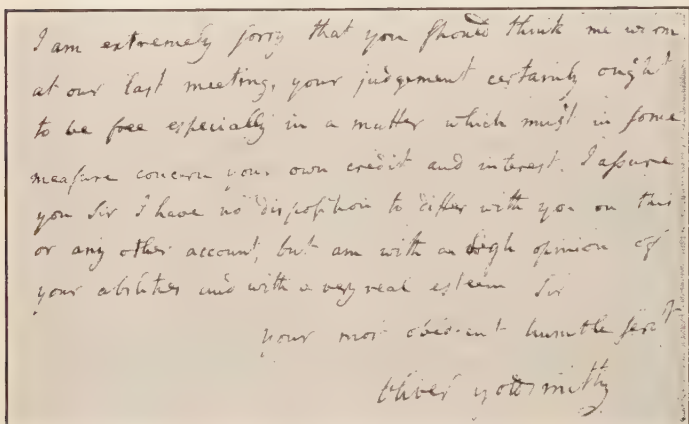 I am extremely sorry that you should think me warm
at our last meeting, your judgement certainly ought
to be free especially in a matter which must in some
measure concern your own credit and interest. I assure
you Sir I have no disposition to differ with you on this
or any other account, but am with an high opinion of
your abilities and with a very real esteem Sir
your most obedient humble serv.t
Oliver Goldsmith